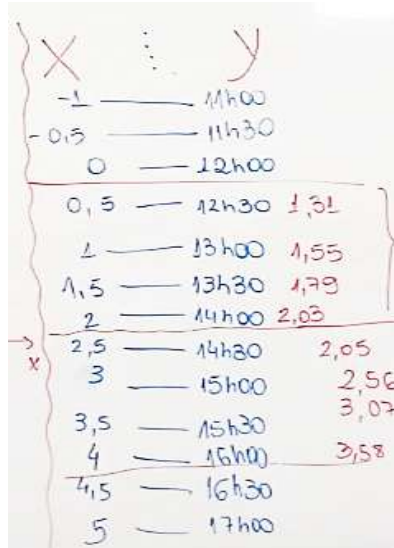 X ⋮ y
-1 — 11h00
-0,5 — 11h30
0 — 12h00
0,5 — 12h30 1,31
1 — 13h00 1,55
1,5 — 13h30 1,79
2 — 14h00 2,03
x
2,5 — 14h30 2,05
3 — 15h00 2,56
3,5 — 15h30 3,07
4 — 16h00 3,58
4,5 — 16h30
5 — 17h00